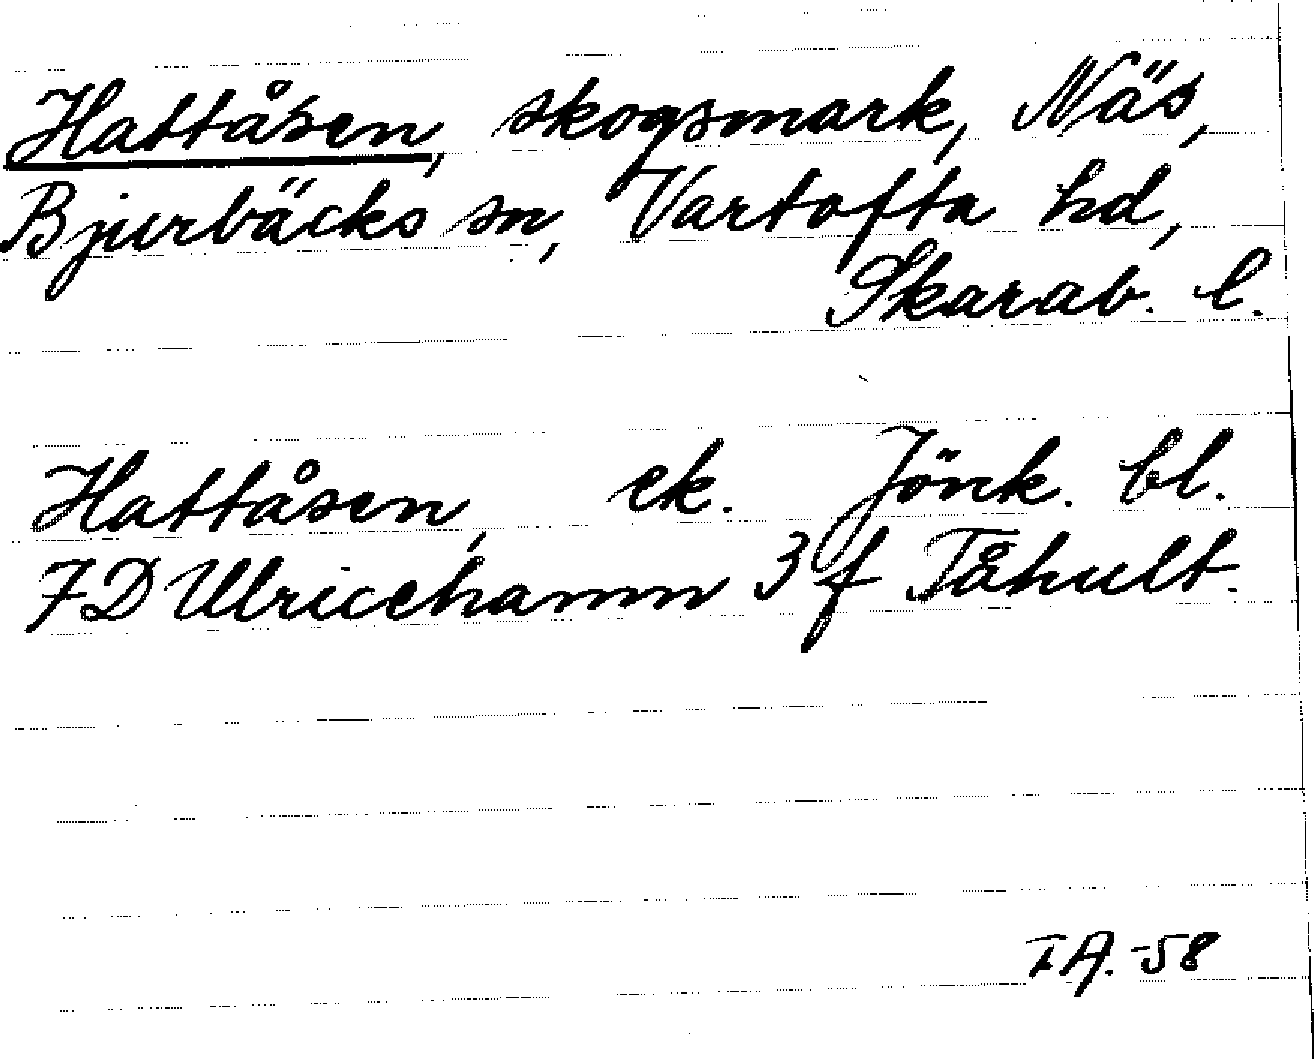 Hattåsen, skogsmark, Näs,
Bjurbäcks sn, Vartofta hd,
Skarab. l.
Hattåsen, ek. Jönk. bl.
7D Ulricehamn 3 f Tåhult.
IA.-58